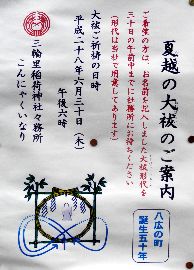 夏越の大祓のご案内
ご希望の方は、お名前を記入しました大祓形代を
三十日の午前中までに社務所にお持ちください
(形代は当社で用意してあります)
大祓ご祈祷の日時
平成二十八年六月三十日(木)
午後六時
三輪里稲荷神社々務所
こんにゃくいなり
八広の町
誕生五十年